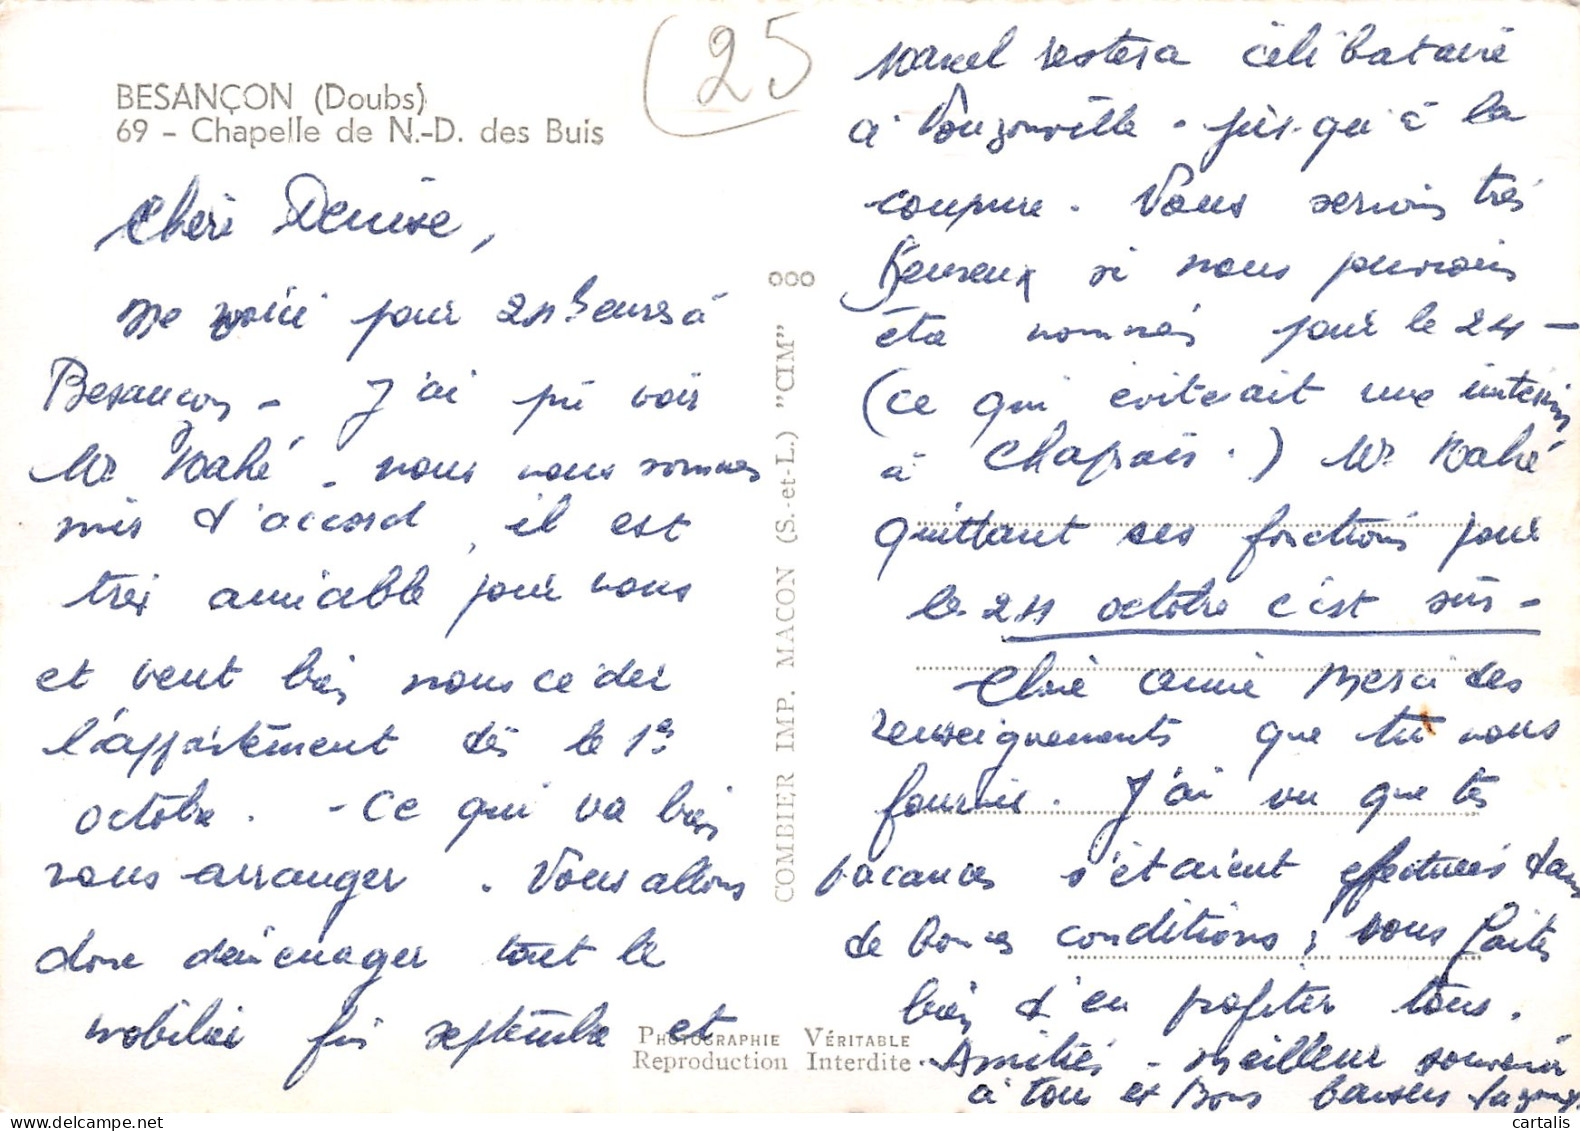 BESANÇON (Doubs)
69 - Chapelle de N.-D. des Buis
(25
Chère Denise,
Me voici pour 24 heures à
Besançon - J'ai pu voir
Mr Mahé - nous nous sommes
mis d'accord, il est
très amiable pour nous
et veut bien nous céder
l'appartement dès le 1er
octobre. - Ce qui va bien
nous arranger. Nous allons
donc déménager tout le
mobilier fin septembre et
Marcel restera célibataire
à jusqu'à la
coupure. Nous serions très
heureux si nous pouvions
être nommés pour le 24 -
(ce qui éviterait une intérim
à Chaprais.) Mr Mahé
quittant ses fonctions pour
le 24 octobre c'est sûr -
Chère amie Merci des
renseignements que tu nous
fournis. J'ai vu que tes
vacances s'étaient effectuées dans
de bonnes conditions ; vous faites
bien d'en profiter tous.
Amitiés - meilleur souvenir
à tous et Bons baisers
COMBIER IMP. MACON (S.-et-L.) "CIM"
PHOTOGRAPHIE VÉRITABLE
Reproduction Interdite
cartalis